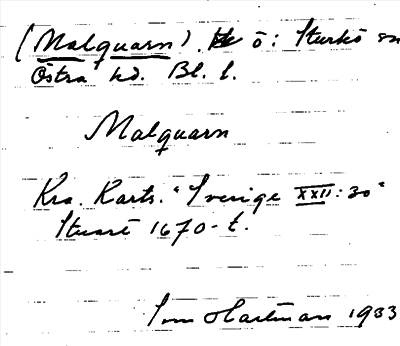 (Malquarn). ö: Sturkö sn
Östra hd. Bl. l.
Malquarn
Kra. Karts. "Sverige XXII:30"
Stuart 1670-t.
Tom Hartman 1933